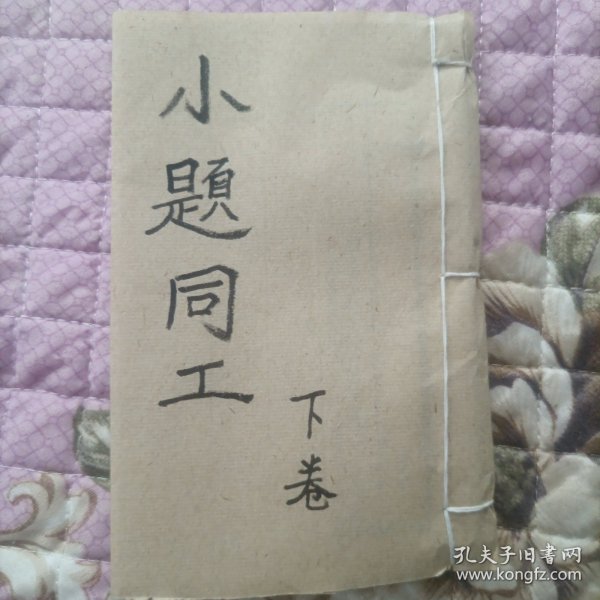 小題同工
下卷
孔夫子旧书网
www.kongfz.com